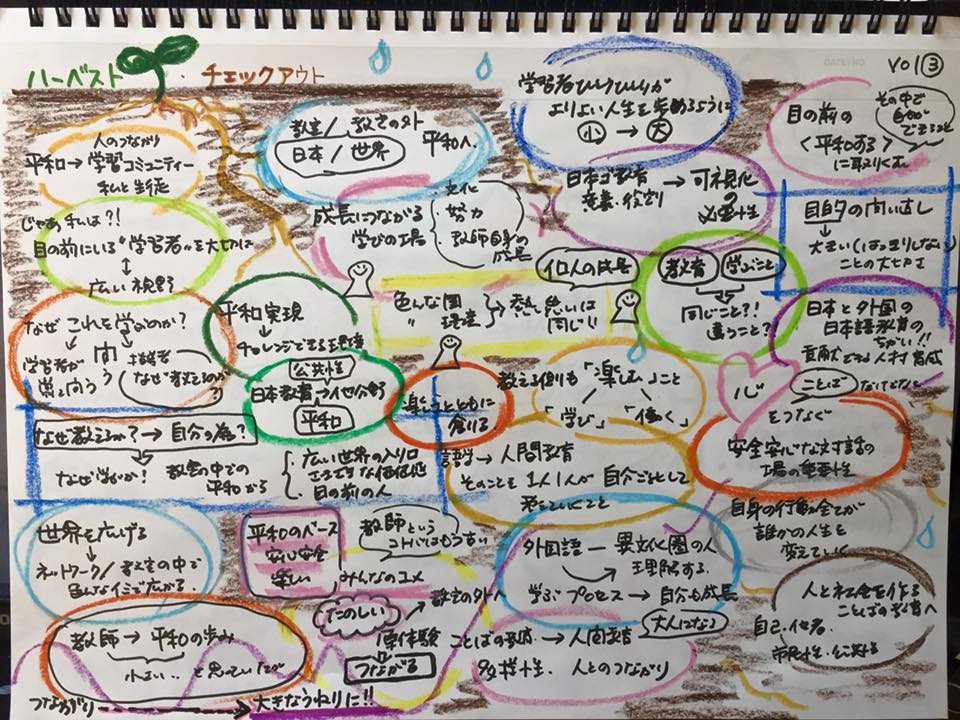 ハーベスト・チェックアウト
DATE/NO
VOl③
人のつながり
平和→学習コミュニティー
私と生徒
教室/教室の外
日本/世界
平和へ
学習者ひとりひとりが
よりよい人生を歩めるように
小→大
目の前の
<平和ある>
に取りくむ
その中で
自分が
できること
じゃあ私は?!
目の前にいる"学習者"を大切に
↕
広い視野
成長につながる
学びの場
文化
努力
教師自身の
成長
日本語教育
意義・役割
→可視化
の
必要性
目的の問い直し
↓
大きい(はっきりしない)
ことの大切さ
なぜこれを学ぶのか?
学習者が
問う
なぜ教えるのか?
平和実現
チャレンジできる環境
色んな国
〃 環境
→熱い思いは
同じ!!
個人の成長
教育
学ぶこと
同じこと?!
違うこと?
日本と外国の
日本語教育の
ちがい!!
貢献できる人材育成
公共性
日本語教育→他分野
平和
楽しさとともに
創りる
教える側も「楽しむ」こと
「学び」「働く」
心
ことば
をつなぐ
安全安心な対話の
場の重要性
なぜ教えるか?→自分の為?
↓
なぜ学ぶか?
教室の中での
平和から
広い世界の入り口
目の前の人
語学→人間教育
そのことを1人1人が自分ごととして
考えていくこと
自身の行動全てが
誰かの人生を
変えていく
世界を広げる
↓
ネットワーク/教室の中で
色んなイミで広がる
平和のベース
安心安全
楽しい
教師という
コトバはもう古い
みんなのユメ
外国語―異文化圏の人
理解する
学ぶプロセス→自分も成長
人と社会を作る
ことばの教育へ
自己・他者
市民性・公共性
教師→平和の歩み
小さい‥と思っていたが
たのしい
原体験
教室の外へ
つながる
ことばの教育→人間教育
大人になる
多様性、人とのつながり
つながり→大きなうねりに!!